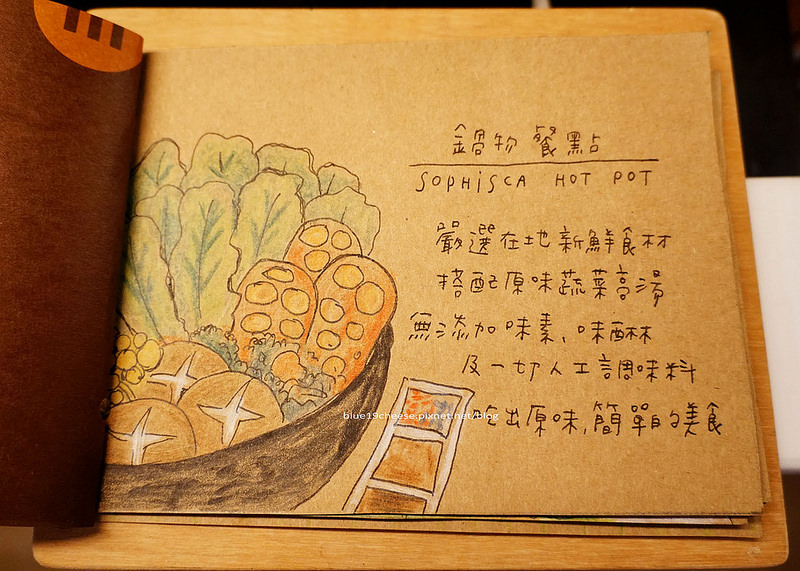 鍋物 餐點
SOPHISCA HOT POT
嚴選在地新鮮食材
搭配原味蔬菜高湯
無添加味素、味醂
及一切人工調味料
吃出原味,簡單的美食
blue19cheese.pixnet.net/blog